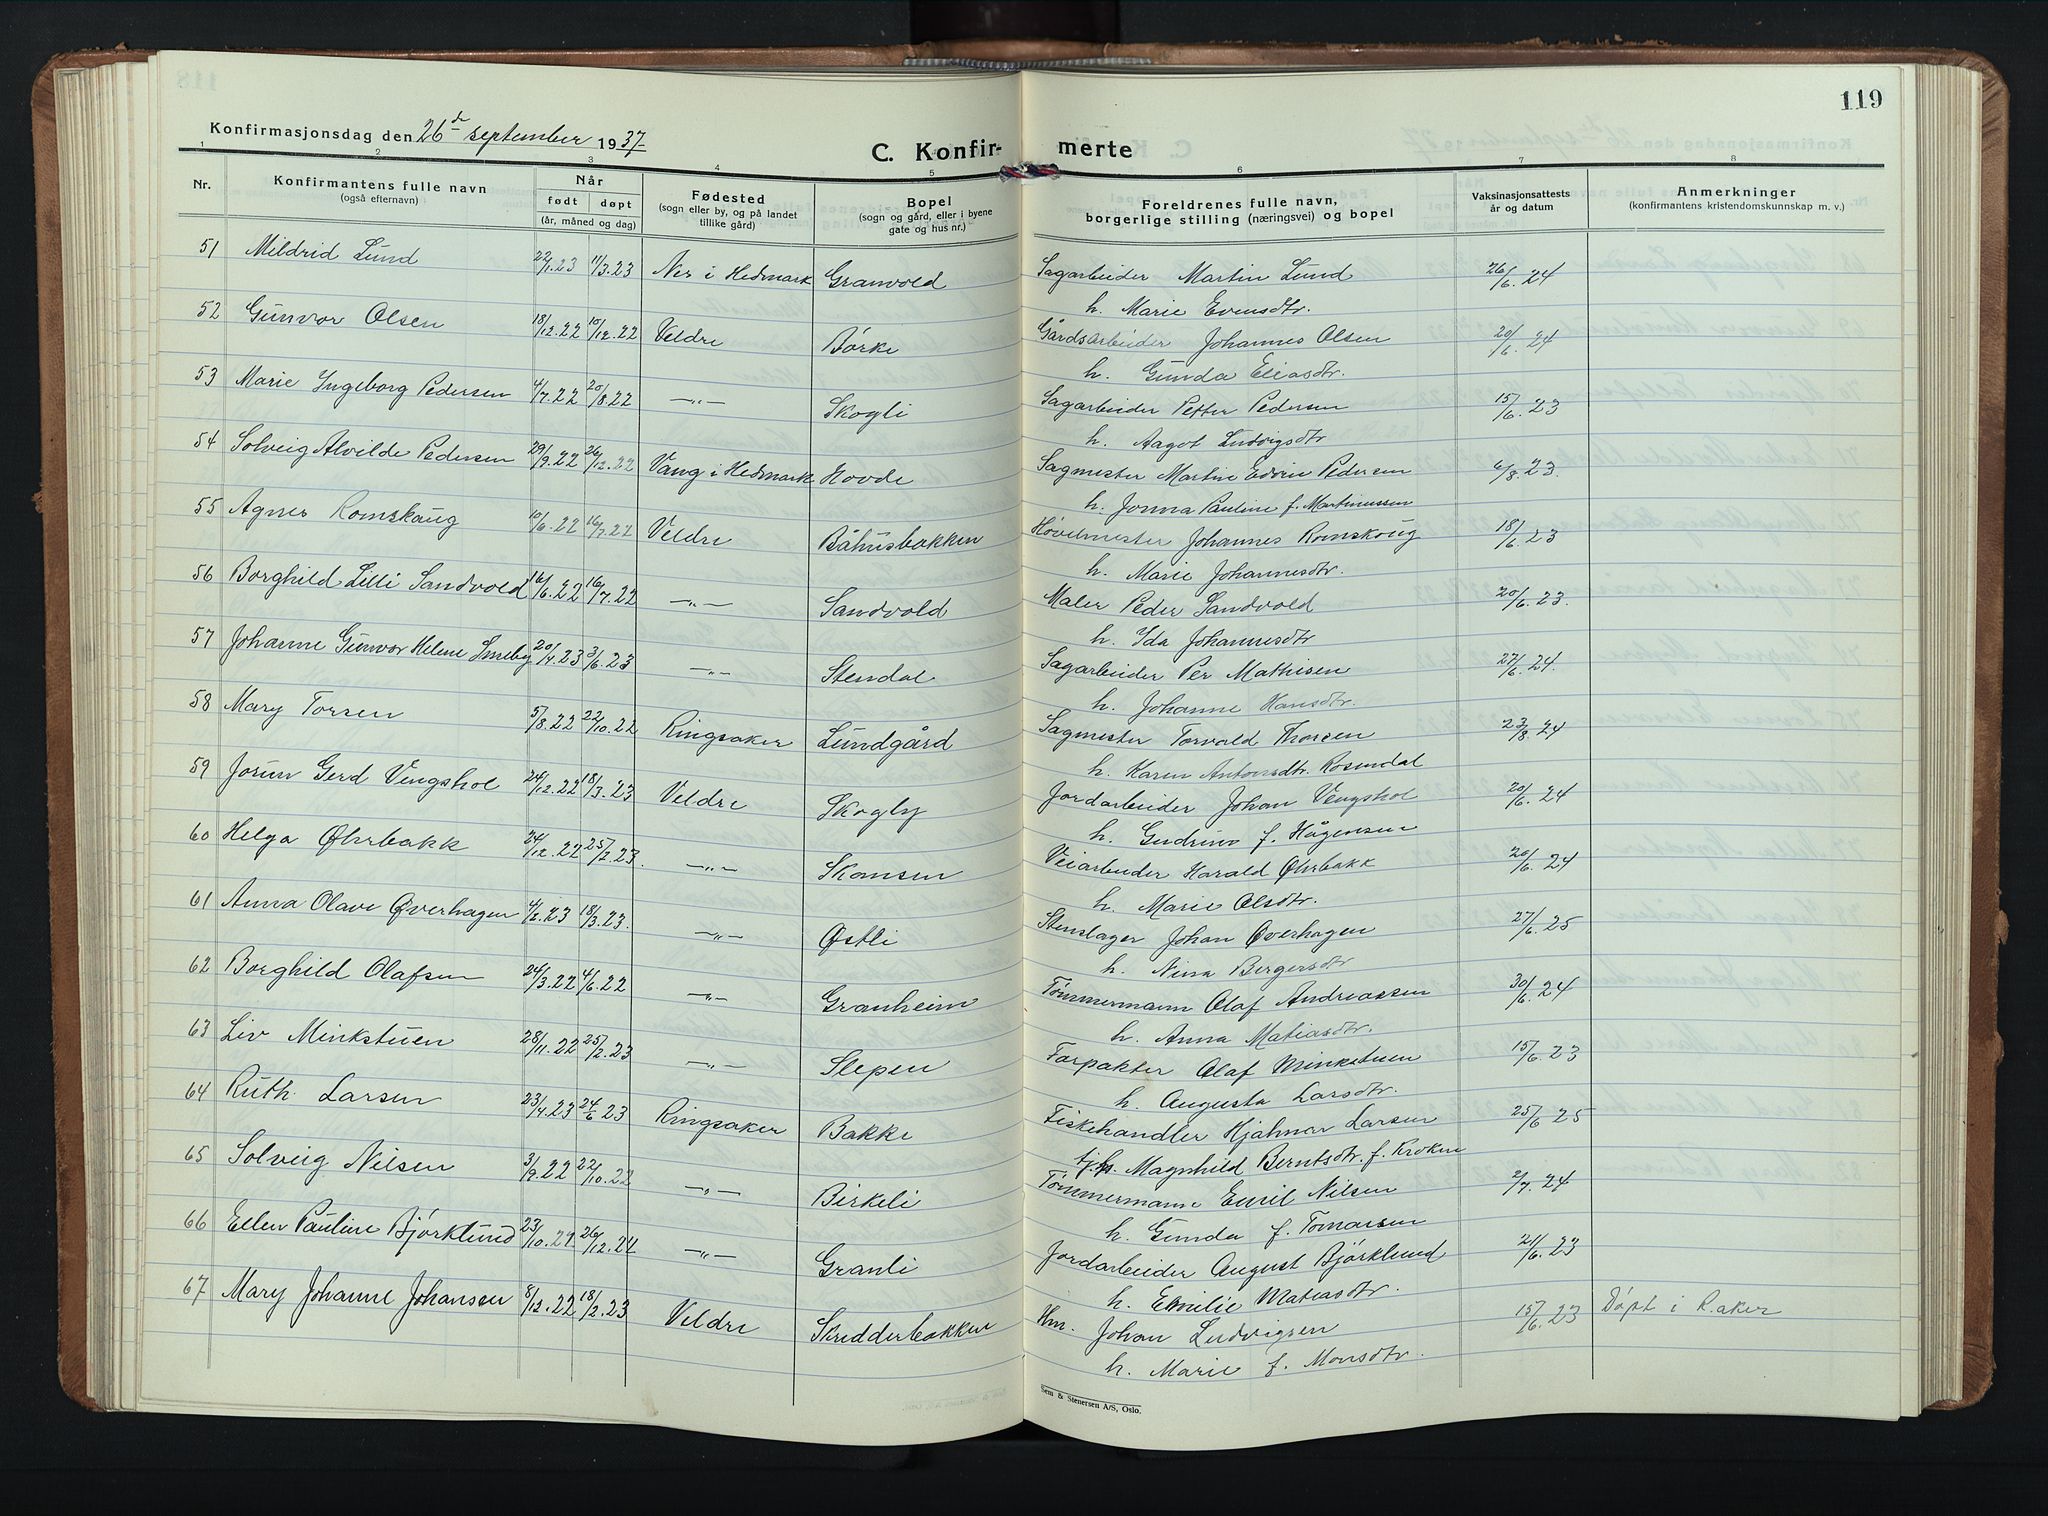 119
Konfirmasjonsdag den 26de september 1937.
C. Konfir- merte
1 2 3 4 5 6 7 8
Nr. Konfirmantens fulle navn (også efternavn) Når født døpt (år, måned og dag) Fødested (sogn eller by, og på landet tillike gård) Bopel (sogn og gård, eller i byene gate og hus nr.) Foreldrenes fulle navn, borgerlige stilling (næringsvei) og bopel Vaksinasjonsattests år og datum Anmerkninger (konfirmantens kristendomskunnskap m. v.)
51 Mildrid Lund 22/1.23 11/3.23 Nes i Hedmark Granvold Sagarbeider Martin Lund 26/6.24
h. Marie Evensdtr.
52 Gunvor Olsen 18/12.22 10/12.22 Veldre Börke Gårdsarbeider Johannes Olsen 20/6.24
h. Gunda Eliasdtr.
53 Marie Ingeborg Pedersen 4/7.22 20/8.22 —„— Skogli Sagarbeider Petter Pedersen 15/6.23
h. Aagot Ludvigsdtr
54 Solveig Alvilde Pedersen 29/9.22 26/12.22 Vang i Hedmark Hovde Sagmester Martin Edvin Pedersen 6/8.23.
h. Jonna Pauline f. Martinussen
55 Agnes Romskaug 10/6.22 16/7.22 Veldre Båhusbakken Høvelmester Johannes Romskoug 18/6.23
h. Marie Johannesdtr.
56 Borghild Lilli Sandvold 16/6.22 16/7.22 —„— Sandvold Maler Peder Sandvold 20/6.23.
h. Ida Johannesdtr
57 Johanne Gunvor Helene Smeby 20/4.23 3/6.23 —„— Stendal Sagarbeider Per Mathisen 27/6.24.
h. Johanne Hansdtr.
58 Mary Torsen 5/8.22 22/10.22 Ringsaker Lundgård Sagmester Torvald Thorsen 23/8.24
h. Karen Antonsdtr. Rosendal
59 Jorun Gerd Vengshol 24/12.22 18/3.23 Veldre Skogly Jordarbeider Johan Vengshol 20/6.24
h. Gudrun f. Hågensen
60 Helga Øhrbakk 24/12.22 25/2.23. —„— Skomsen Veiarbeider Harald Øhrbakk 20/6.24
h. Marie Olsdtr.
61 Anna Olave Øverhagen 4/2.23 18/3.23. —„— Østli Stenslager Johan Øverhagen 27/6.25
h. Nina Bergersdtr
62 Borghild Olafsen 24/3.22 4/6.22 —„— Granheim Tömmermann Olaf Andreassen 30/6.24
h. Anna Matiasdtr.
63 Liv Minkstuen 28/11.22 25/2.23 —„— Slepen Forpakter Olaf Minkstuen 15/6.23
h. Augusta Larsdtr.
64 Ruth Larsen 23/4.23 24/6 23 Ringsaker Bakke Fiskehandler Hjalmar Larsen 25/6 25
h. Magnhild Berntsdtr. f. Kroken
65 Solveig Nilsen 3/9.22 22/10.22 —„— Birkeli Tömmermann Emil Nilsen 2/7.24
h. Gunda f. Tomassen
66 Ellen Pauline Björklund 23/10.24 26/12.24 —„— Granli Jordarbeider August Björklund 21/6.23
h. Emilie Matiasdtr.
67 Mary Johanne Johansen 8/12.22 18/2.23 Veldre Skredderbakken Hm. Johan Ludvigsen 15/6.23 Döpt i R.aker
h. Marie f. Monsdtr.
Sem & Stenersen A/S, Oslo.